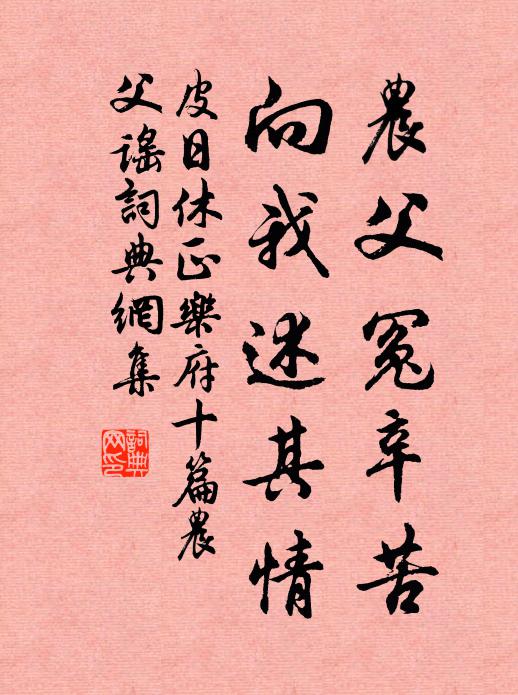 農父冤辛苦
向我述其情
皮日休正樂府十篇農
父謠詞典網集
詞典
网印